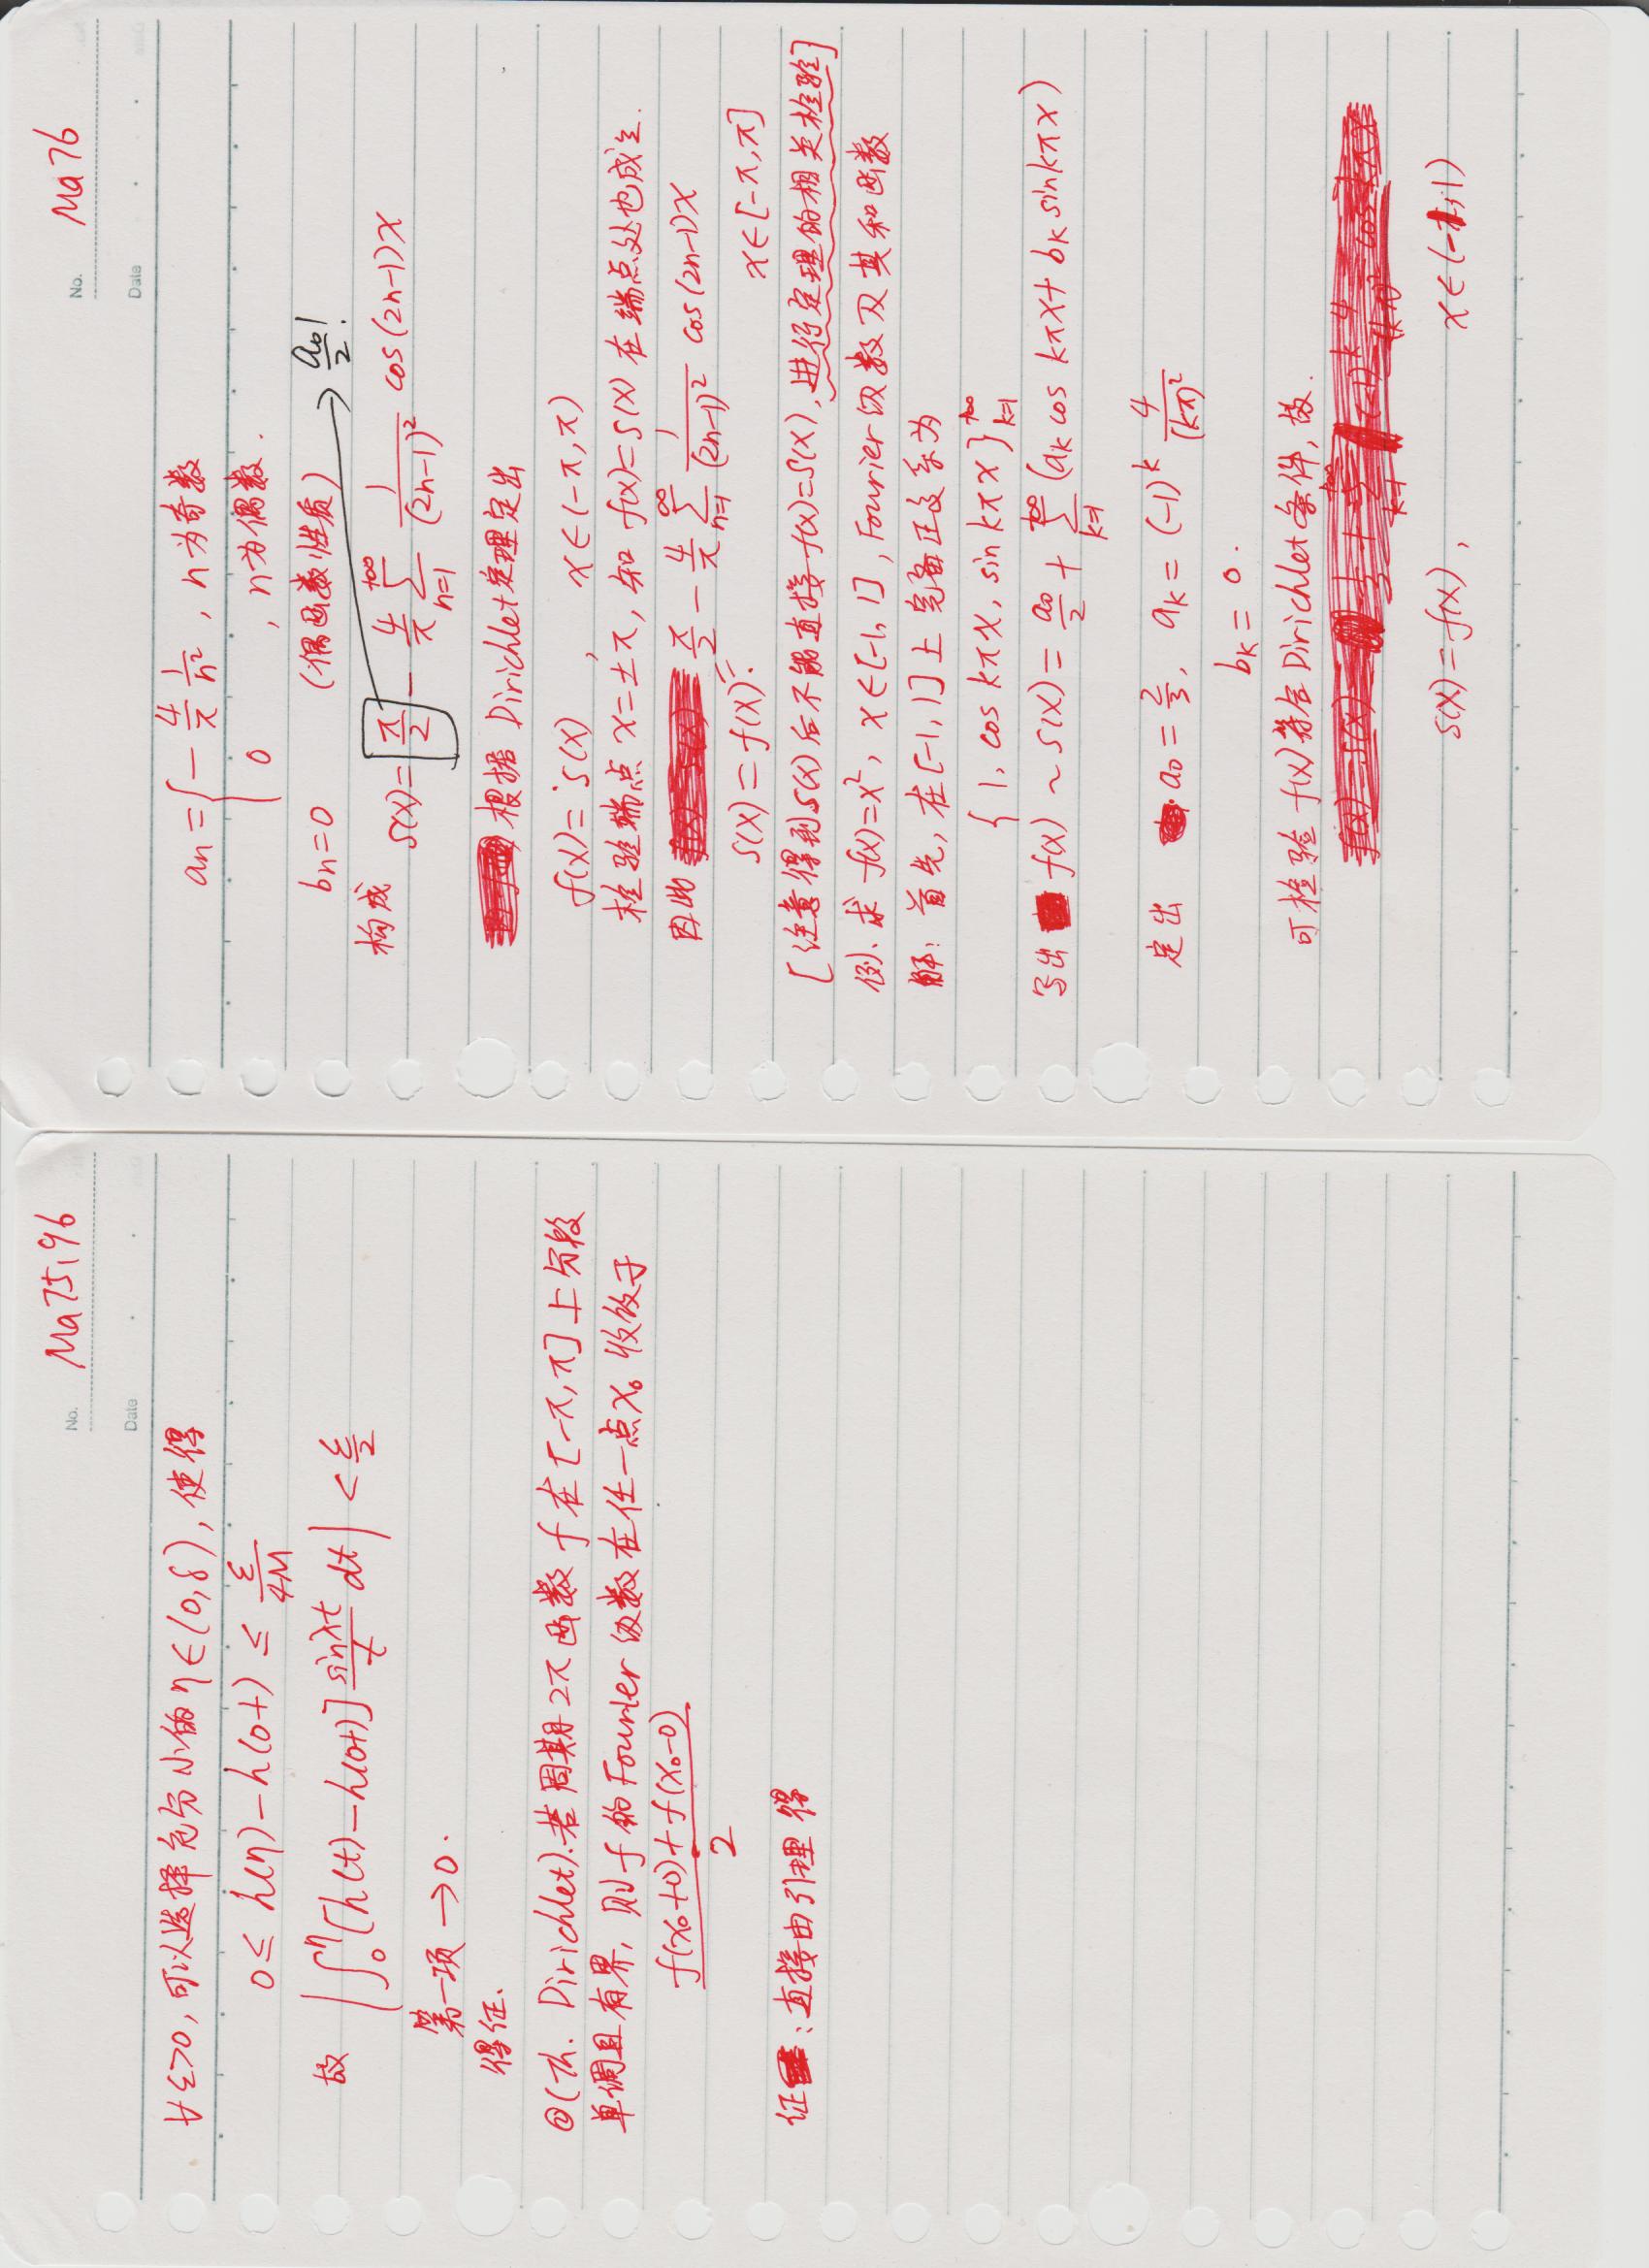 No. Ma75,96
Date
∀ε>0,可以选择充分小的η∈(0,δ),使得
0≤ h(η)-h(0+) ≤ ε/4M
故 |∫₀^η [h(t)-h(0+)] sinλt/t dt| < ε/2
第一项→0.
得证.
②(Th. Dirichlet).若周期2π函数f在[-π,π]上分段
单调且有界,则f的Fourier级数在任一点x₀收敛于
(f(x₀+0)+f(x₀-0))/2
证:直接由引理得
No. Ma76
Date
aₙ = { -4/π 1/n² , n为奇数
0 , n为偶数.
bₙ=0 (偶函数性质) → a₀/2!
构成 S(x)= π/2 - 4/π Σ_{n=1}^{+∞} 1/(2n-1)² cos(2n-1)x
根据Dirichlet定理定出
f(x)=S(x) , x∈(-π,π)
检验端点x=±π,知f(x)=S(x)在端点处也成立.
因此 π/2 - 4/π Σ_{n=1}^{∞} 1/(2n-1)² cos(2n-1)x
S(x)=f(x)= x∈[-π,π]
[注意得到S(x)后不能直接f(x)=S(x),进行定理的相关检验]
例.求f(x)=x², x∈[-1,1],Fourier级数及其和函数
解:首先,在[-1,1]上完备正交系为
{1, cos kπx, sin kπx}_{k=1}^{+∞}
写出 f(x) ~ S(x) = a₀/2 + Σ_{k=1}^{+∞} (aₖ cos kπx + bₖ sin kπx)
定出 a₀=2/3, aₖ=(-1)^k 4/(kπ)²
bₖ=0.
可检验f(x)符合Dirichlet条件,故.
S(x)=f(x), x∈(-1,1)